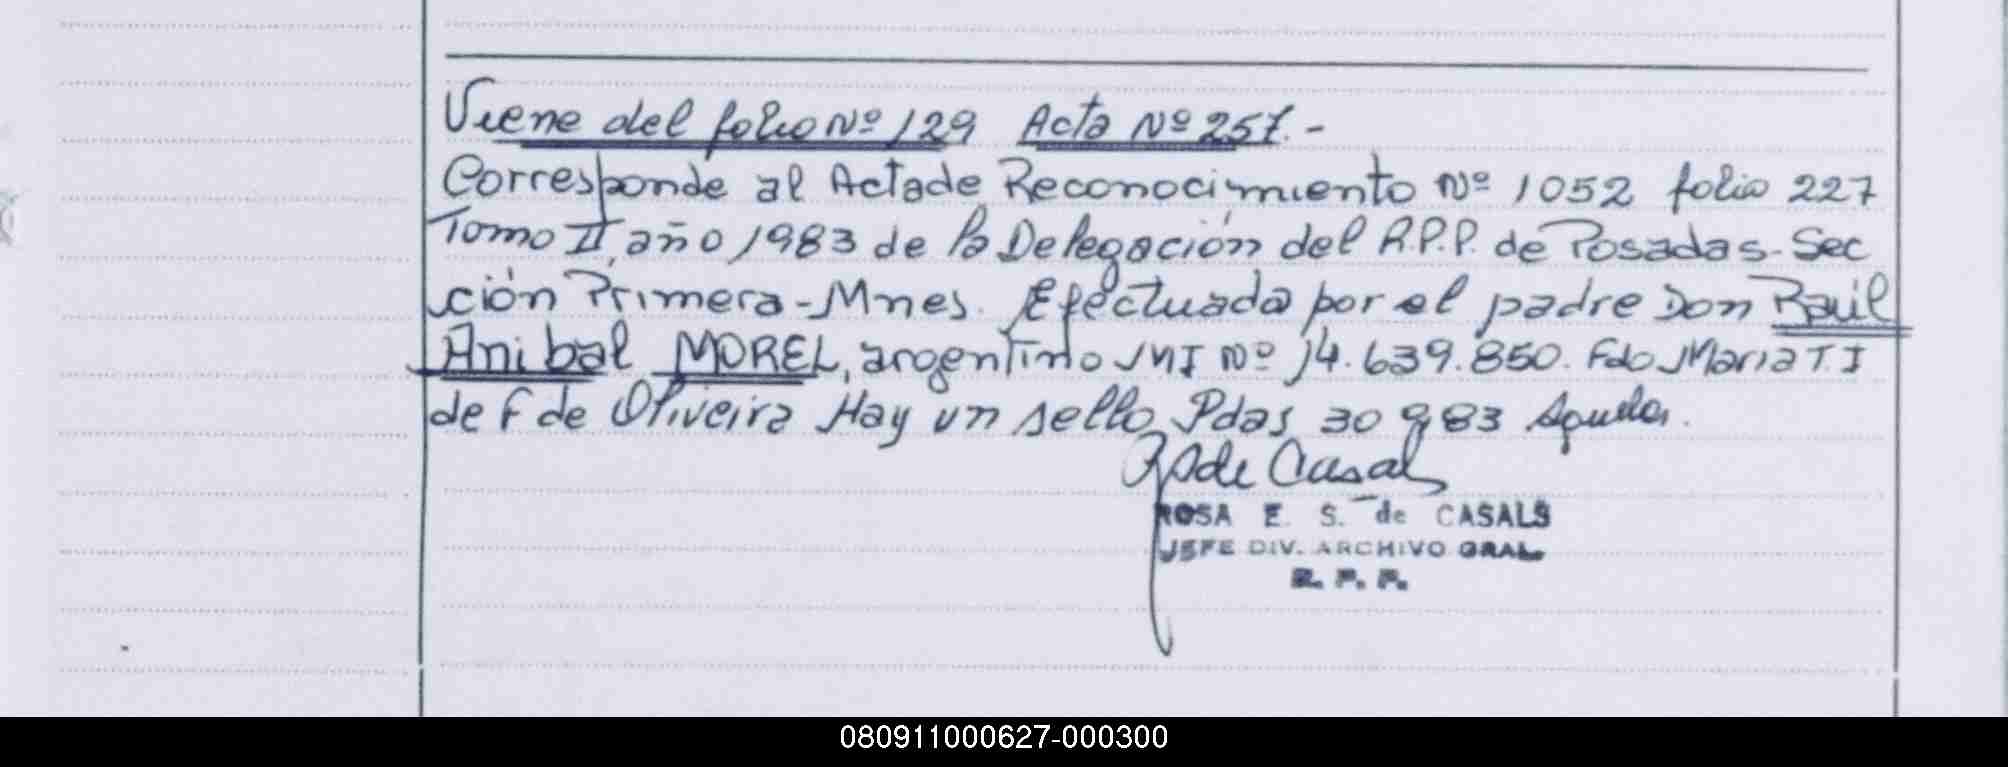 Viene del folio Nº 129 Acta Nº 257.-
Corresponde al Acta de Reconocimiento Nº 1052 folio 227
Tomo II, año 1983 de la Delegación del R.P.P. de Posadas-Sec
ción Primera-Mnes. Efectuada por el padre Don Raúl
Anibal MOREL, argentino MI Nº 14.639.850. Fdo Maria T. I
de F de Oliveira Hay un sello Pdas 30 9 83
RS de Casals
ROSA E. S. de CASALS
JEFE DIV. ARCHIVO GRAL.
R. P. P.
080911000627-000300